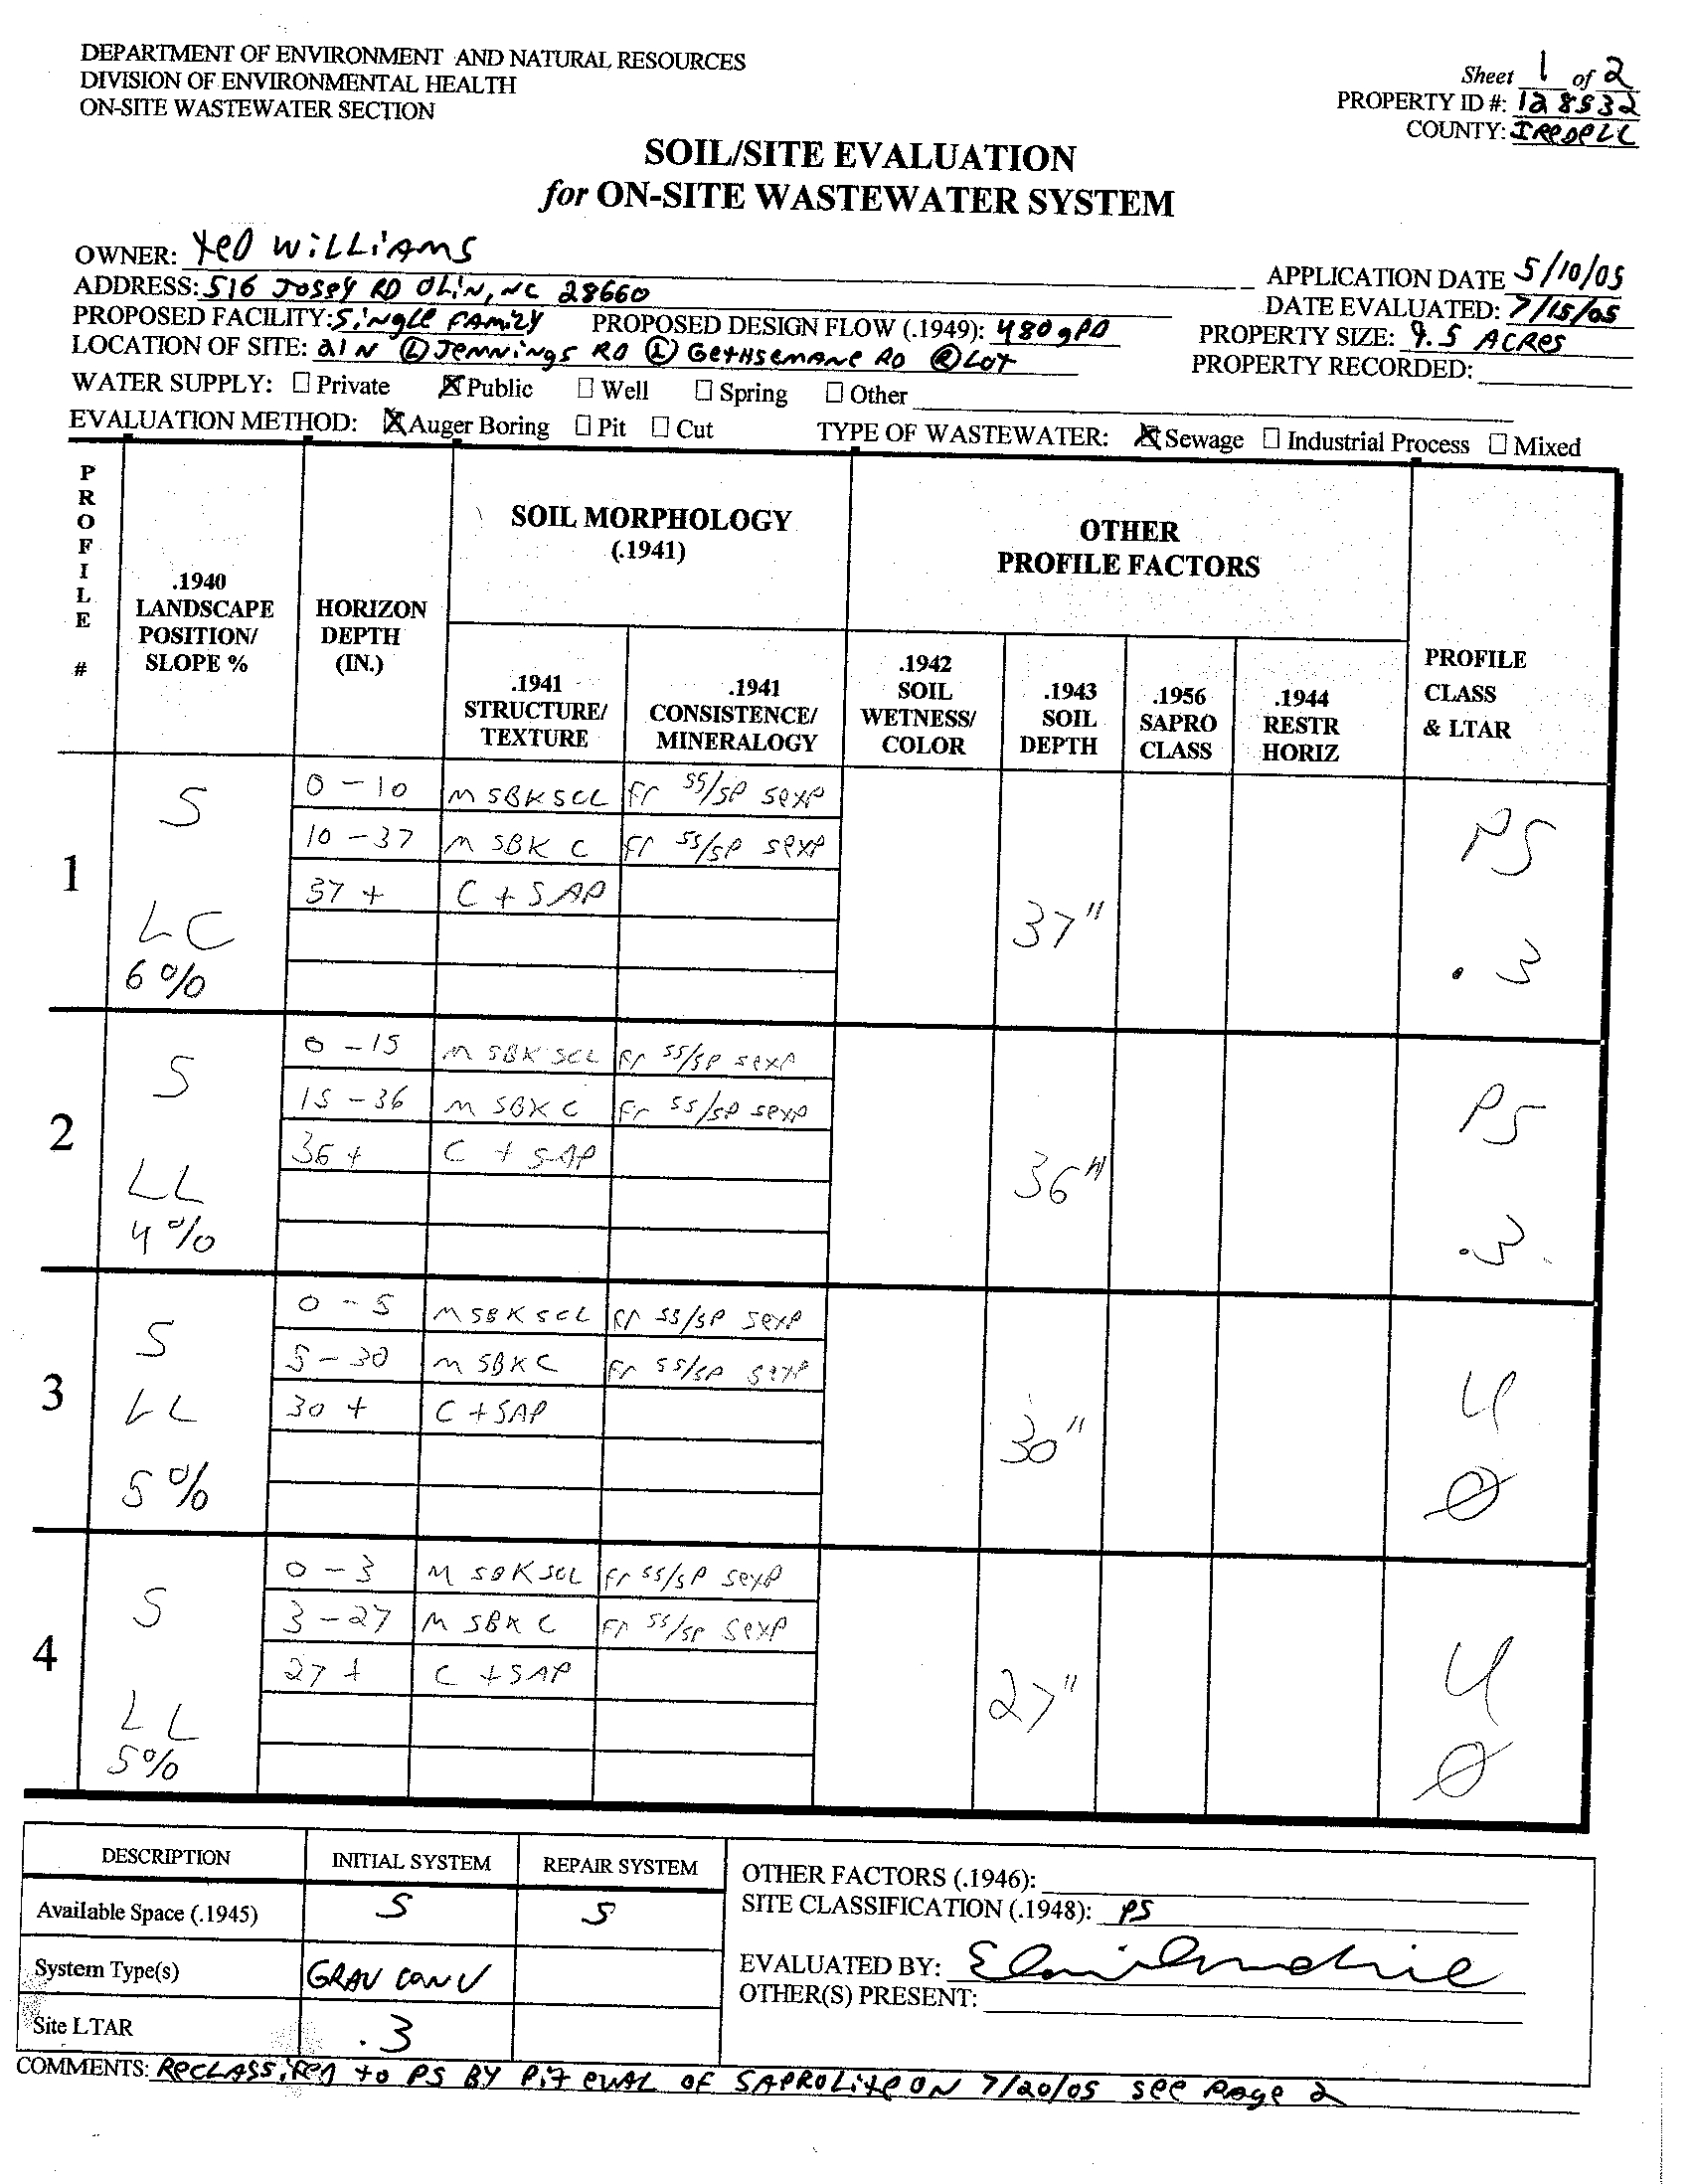 DEPARTMENT OF ENVIRONMENT AND NATURAL RESOURCES
DIVISION OF ENVIRONMENTAL HEALTH
ON-SITE WASTEWATER SECTION
Sheet 1 of 2
PROPERTY ID #: 128532
COUNTY: IREDELL
SOIL/SITE EVALUATION
for ON-SITE WASTEWATER SYSTEM
OWNER: Williams
ADDRESS: 516 Jossy RD Olin, NC 28660
PROPOSED FACILITY: Single Family PROPOSED DESIGN FLOW (.1949): 480 gPD
LOCATION OF SITE: 21 N (L) Jennings RD (L) Gethsemane RD (R) Lot
WATER SUPPLY: ☐ Private ☒ Public ☐ Well ☐ Spring ☐ Other
EVALUATION METHOD: ☒ Auger Boring ☐ Pit ☐ Cut TYPE OF WASTEWATER: ☒ Sewage ☐ Industrial Process ☐ Mixed
APPLICATION DATE 5/10/05
DATE EVALUATED: 7/15/05
PROPERTY SIZE: 9.5 Acres
PROPERTY RECORDED:
PROFILE #
.1940 LANDSCAPE POSITION/ SLOPE %
HORIZON DEPTH (IN.)
SOIL MORPHOLOGY (.1941)
.1941 STRUCTURE/ TEXTURE
.1941 CONSISTENCE/ MINERALOGY
OTHER PROFILE FACTORS
.1942 SOIL WETNESS/ COLOR
.1943 SOIL DEPTH
.1956 SAPRO CLASS
.1944 RESTR HORIZ
PROFILE CLASS & LTAR
1 S LC 6%
0-10 M SBK SCL Fr SS/SP Sexp
10-37 M SBK C Fr SS/SP Sexp
37+ C + SAP
37" PS .3
2 S LL 4%
0-15 M SBK SCL Fr SS/SP Sexp
15-36 M SBK C Fr SS/SP Sexp
36+ C + SAP
36" PS .3
3 S LL 5%
0-5 M SBK SCL Fr SS/SP Sexp
5-30 M SBK C Fr SS/SP Sexp
30+ C + SAP
30" U Ø
4 S LL 5%
0-3 M SBK SCL Fr SS/SP Sexp
3-27 M SBK C Fr SS/SP Sexp
27+ C + SAP
27" U Ø
DESCRIPTION INITIAL SYSTEM REPAIR SYSTEM
Available Space (.1945) S S
System Type(s) GRAV CONV
Site LTAR .3
OTHER FACTORS (.1946):
SITE CLASSIFICATION (.1948): PS
EVALUATED BY:
OTHER(S) PRESENT:
COMMENTS: Reclassified to PS BY Pit eval OF SAPROLite ON 7/20/05 see Page 2